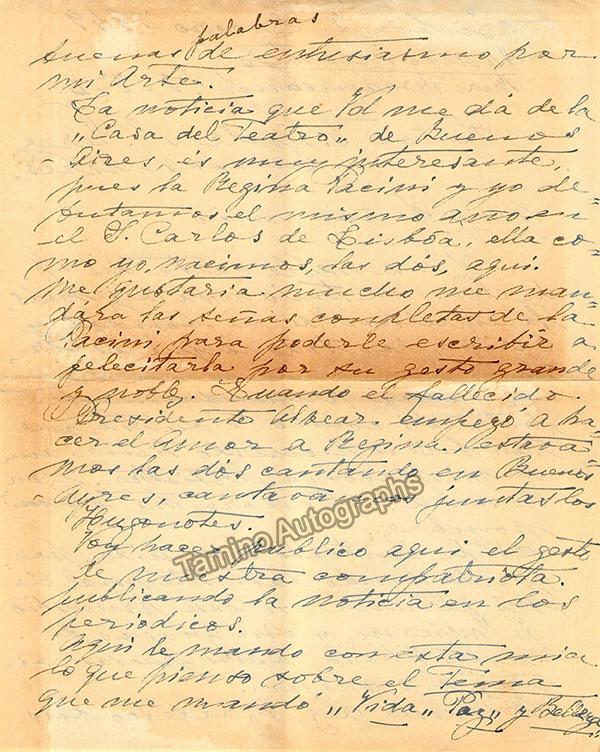 palabras
buenas de entusiasmo por
mi Arte.
La noticia que Vd me dá de la
„Casa del Teatro„ de Buenos
- Aires, és muy interesante,
pues la Regina Pacini y yo de=
butamos el mismo año en
el S. Carlos de Lisbôa, ella co=
mo yo, nacimos, las dós, aqui.
Me gustaria mucho me man=
dára las señas completas de la
Pacini, para poderle escribir a
felecitarla por su gesto grande
y noble. Cuando el fallecido
Presidente Alvear empezó a ha=
cer el amor a Regina, estava
mos las dós cantando en Buenos
- Ayres, cantavamos juntas los
Hugonotes.
Voy hacer publico aqui el gesto
de nuestra compatriota.
publicando la noticia en los
periodicos.
Aqui le mando con esta mia
lo que pienso sobre el Tema
que me mandó „Vida„ Paz„ y Belleza„
Tamino Autographs